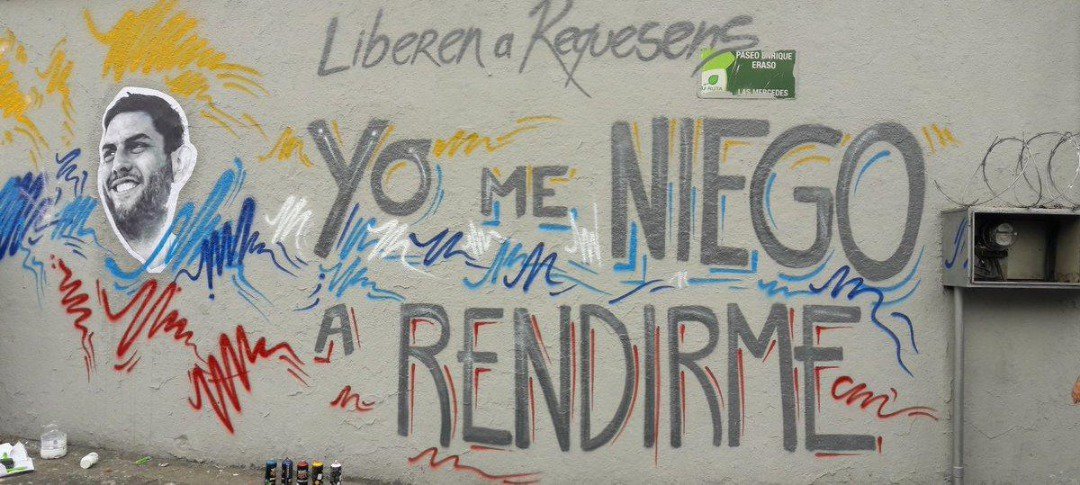 Liberen a Requesens
PASEO ENRIQUE
ERASO
LAS MERCEDES
YO ME NIEGO
A RENDIRME